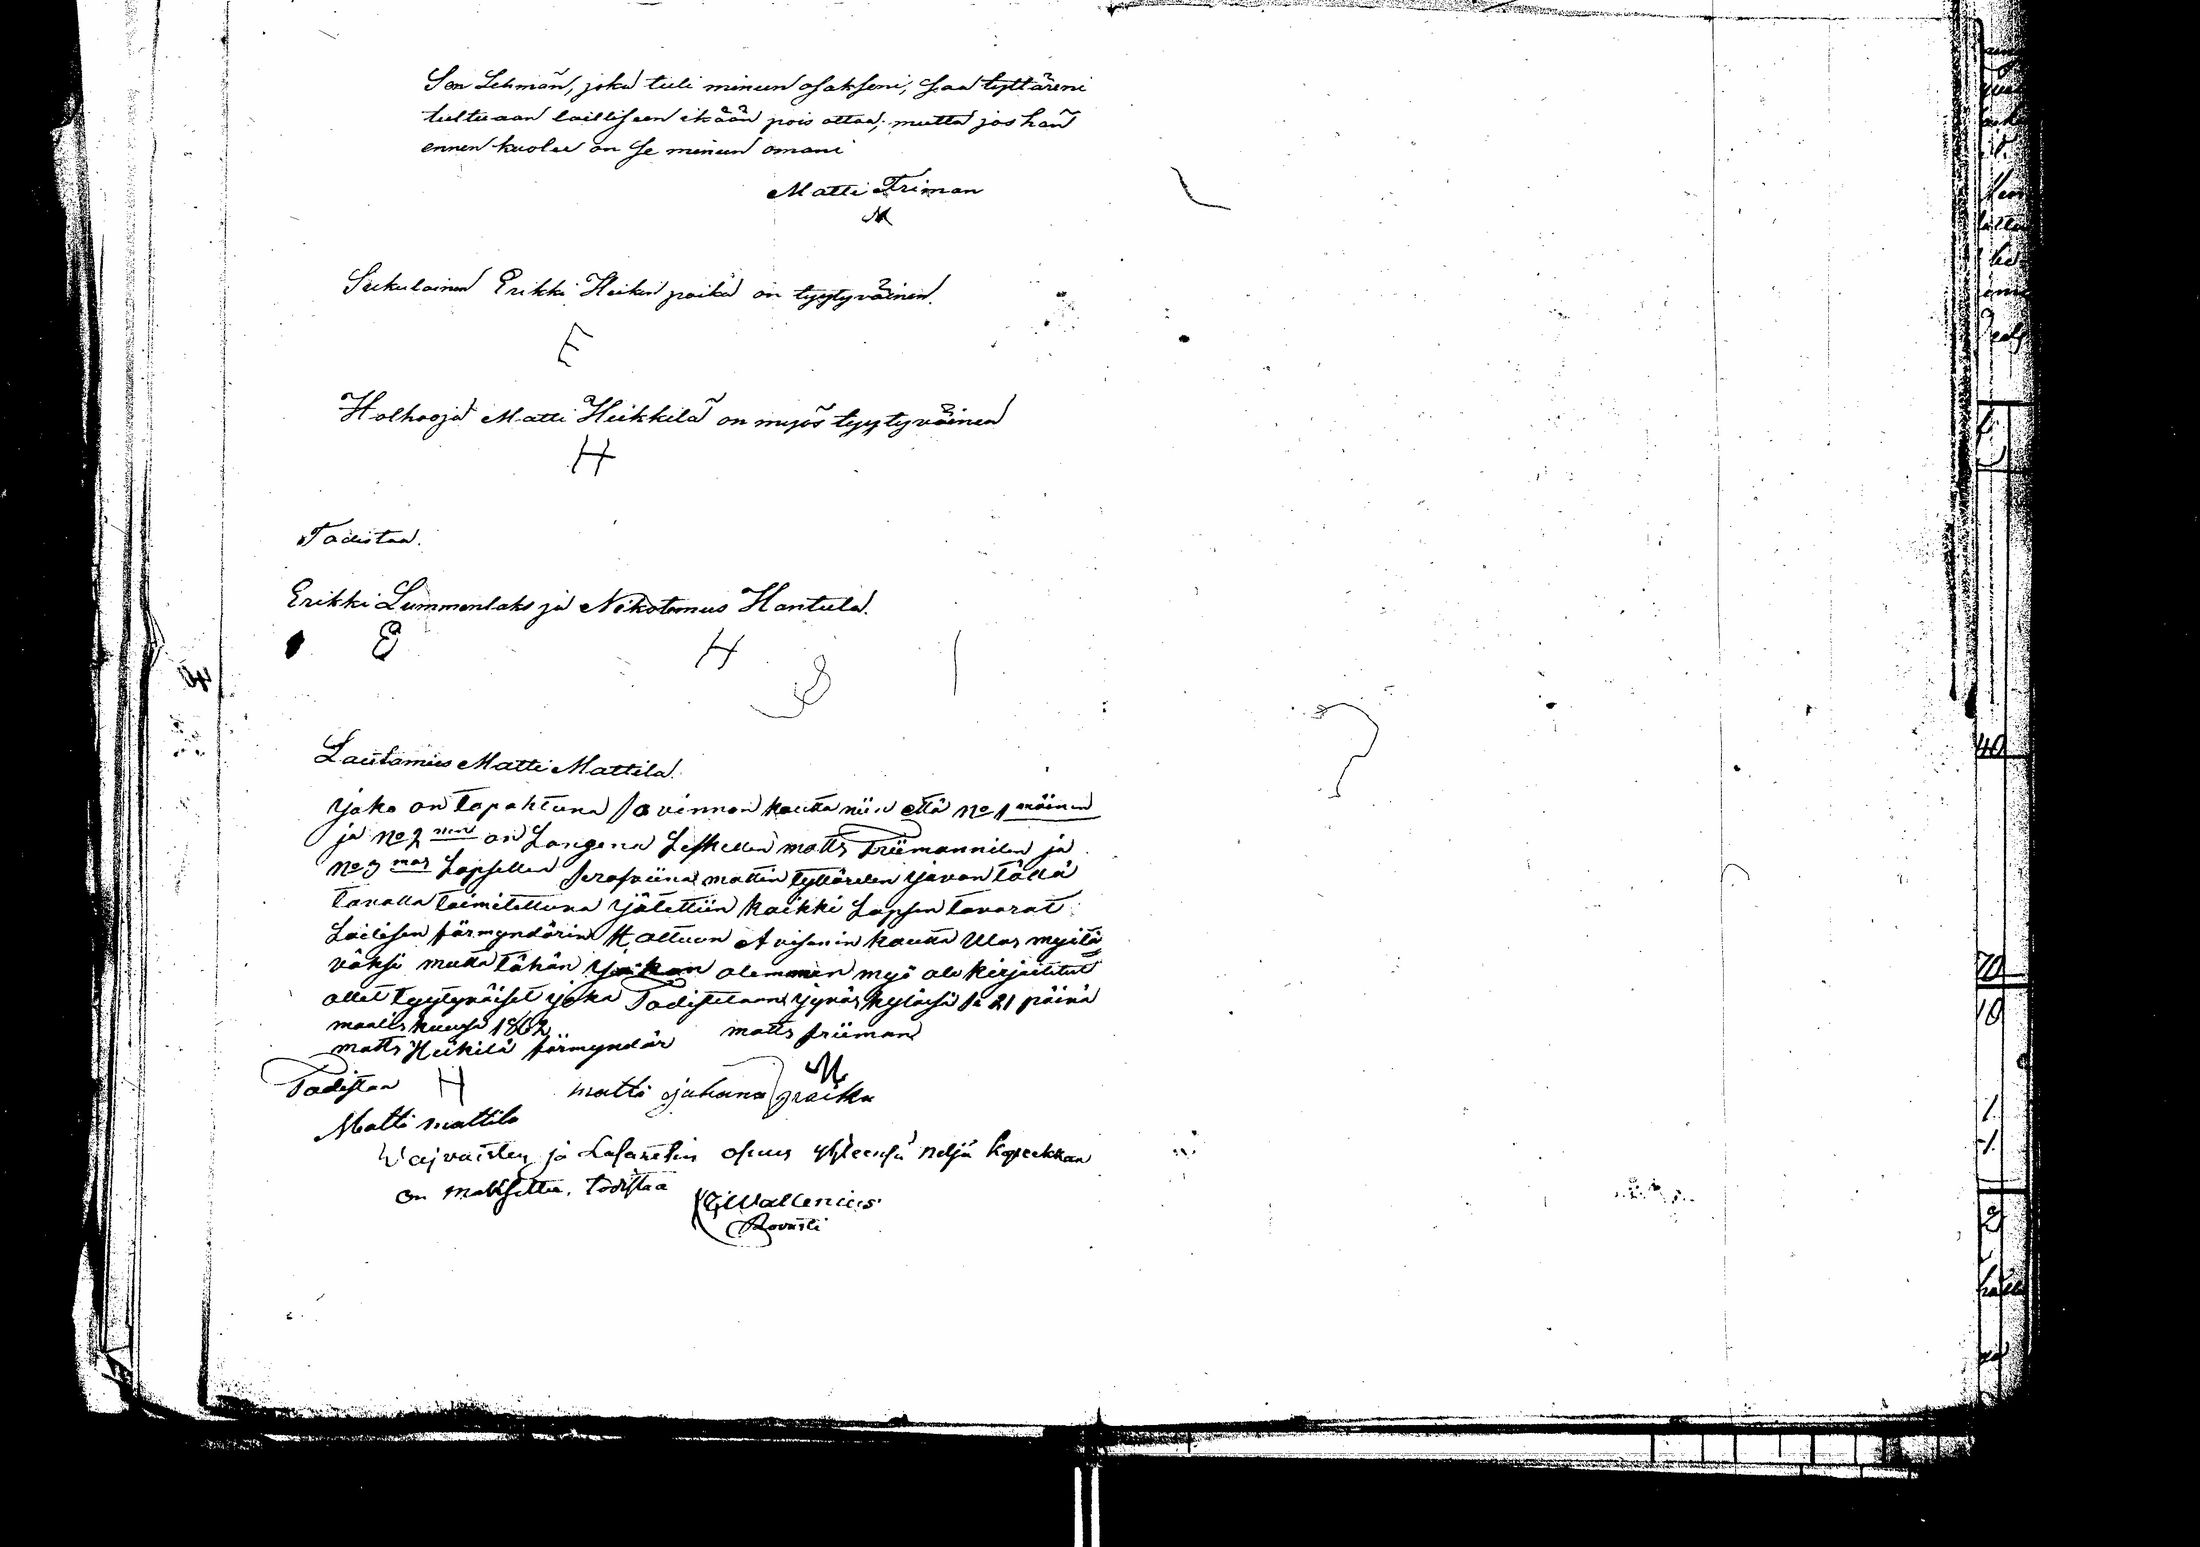 Sen Lehmän, joka tuli minun osakseni, saa tyttäreni
tultuaan lailliseen ikään pois ottaa, mutta jos hän
ennen kuolee on se minun omani
Matti Friman
M
Sukulainen Erikki Heikin poika on tyytyväinen.
E
Holhooja Matti Heikkilä on myös tyytyväinen
H
Todistaa.
Erikki Lummenlaks ja Nikotemus Hantula.
E H
Lautamies Matti Mattila.
joko on tapahtuna sovinnon kautta niin että No 1 mäinen
ja No 2 nen on Langena Leskellen matts Friimannilen ja
No 3 mas Lapsellen serafiina mattin tyttärelen javan tällä
tavalla toimitettuna jätettiin kaikki Lapsen tavarat
Lailisen förmyndärin Haltuun Avisonin kautta Ulos myitä
väksi mutta tähän olemmen myö ale kirjoitetut
ollet tyytyväiset joka Todistetaan jyväs kyläsä se 21 päivä
maalis kuusa 1862
matts Heikilä förmyndär matts friiman
Todistaa H matti juhana poika M
Matti mattila
Waivaisten ja Lasaretin osuus yhteensä neljä kopeekkaa
on maksettu, todistaa
Wallenius
Rovasti
40
70
10
1